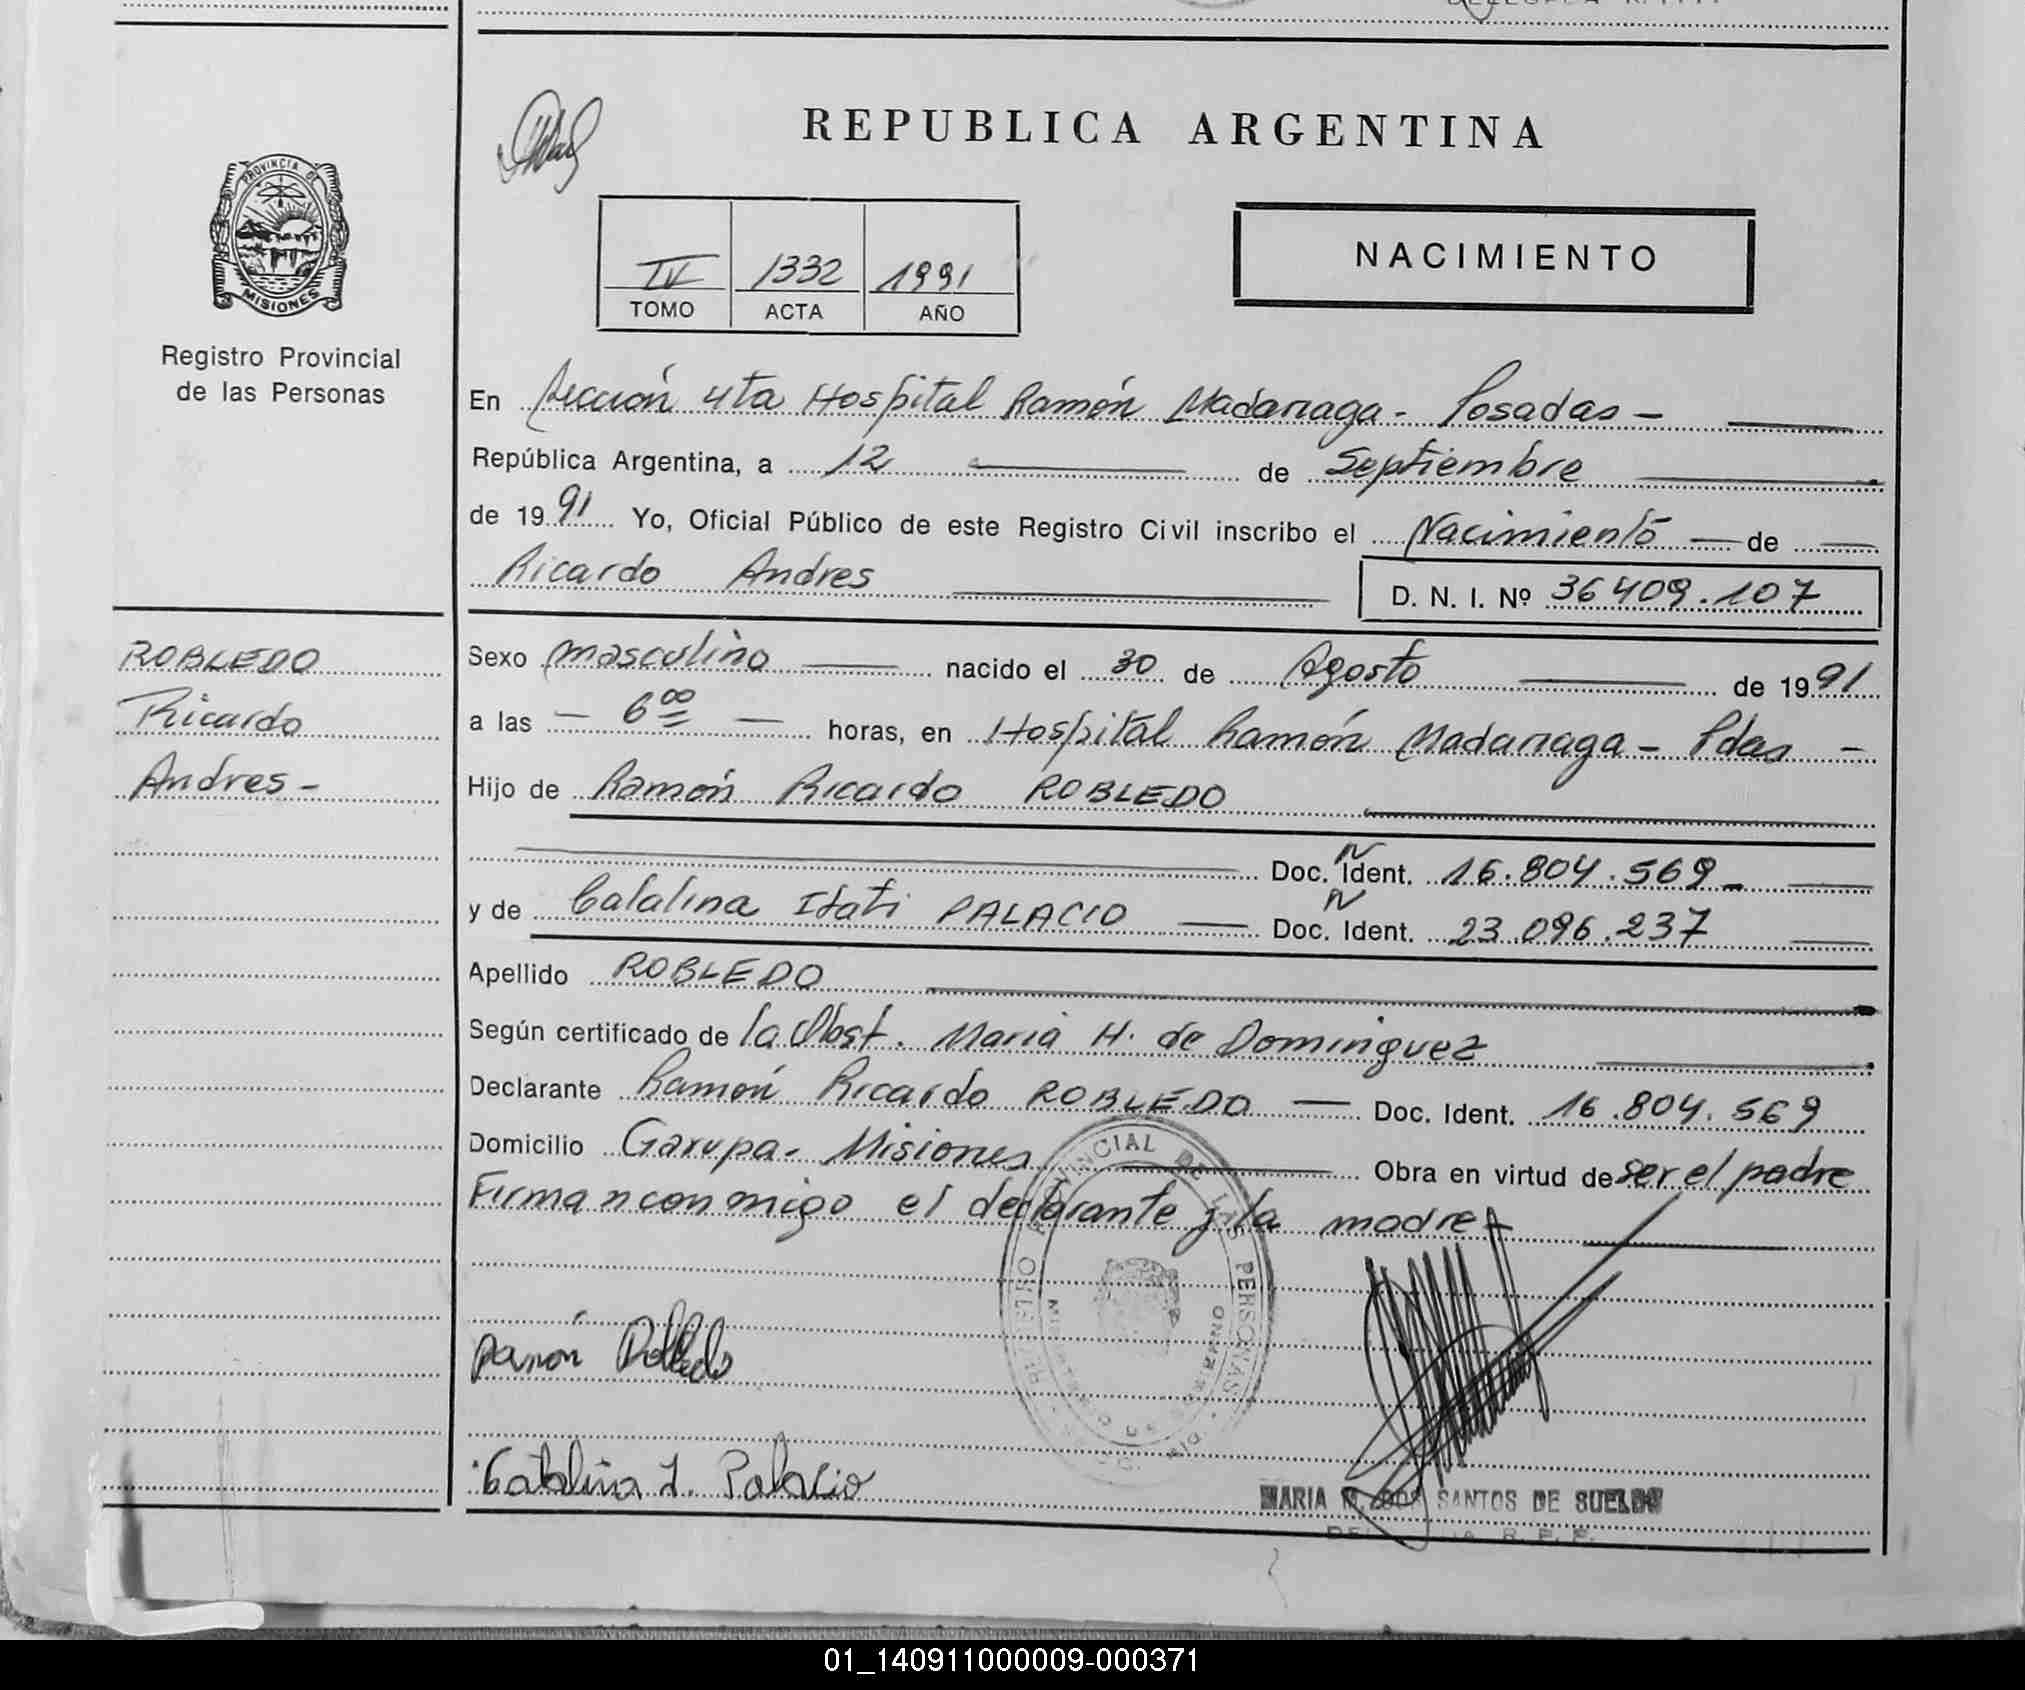 REPUBLICA ARGENTINA
PROVINCIA DE
MISIONES
Registro Provincial
de las Personas
NACIMIENTO
IV 1332 1991
TOMO ACTA AÑO
En Sección 4ta Hospital Ramón Madariaga - Posadas -
República Argentina, a 12 de Septiembre
de 1991 Yo, Oficial Público de este Registro Civil inscribo el Nacimiento de
Ricardo Andres D. N. I. Nº 36409.107
ROBLEDO
Ricardo
Andres -
Sexo masculino nacido el 30 de Agosto de 1991
a las - 6 00 - horas, en Hospital Ramón Madariaga - Pdas -
Hijo de Ramón Ricardo ROBLEDO
Doc. N Ident. 16.804.569
y de Catalina Itati PALACIO Doc. N Ident. 23.096.237
Apellido ROBLEDO
Según certificado de la Obst. Maria H. de Dominguez
Declarante Ramón Ricardo ROBLEDO Doc. Ident. 16.804.569
Domicilio Garupa - Misiones Obra en virtud de ser el padre
Firman conmigo el declarante y la madre
REGISTRO PROVINCIAL DE LAS PERSONAS
MINISTERIO DE GOBIERNO
Ramón Robledo
Catalina I. Palacio
MARIA DOS SANTOS DE SUELDO
R. P. P.
01_140911000009-000371